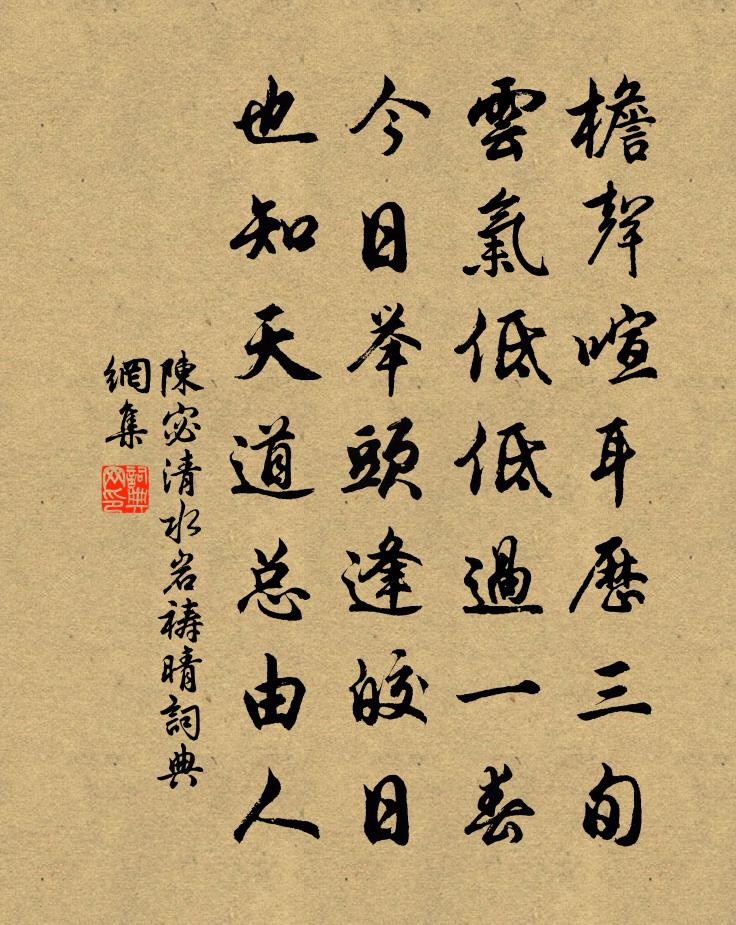 檐聲喧耳歷三旬
雲氣低低過一春
今日举頭逢皎日
也知天道总由人
陳宓清水岩祷晴詞典
網集
詞典
网印